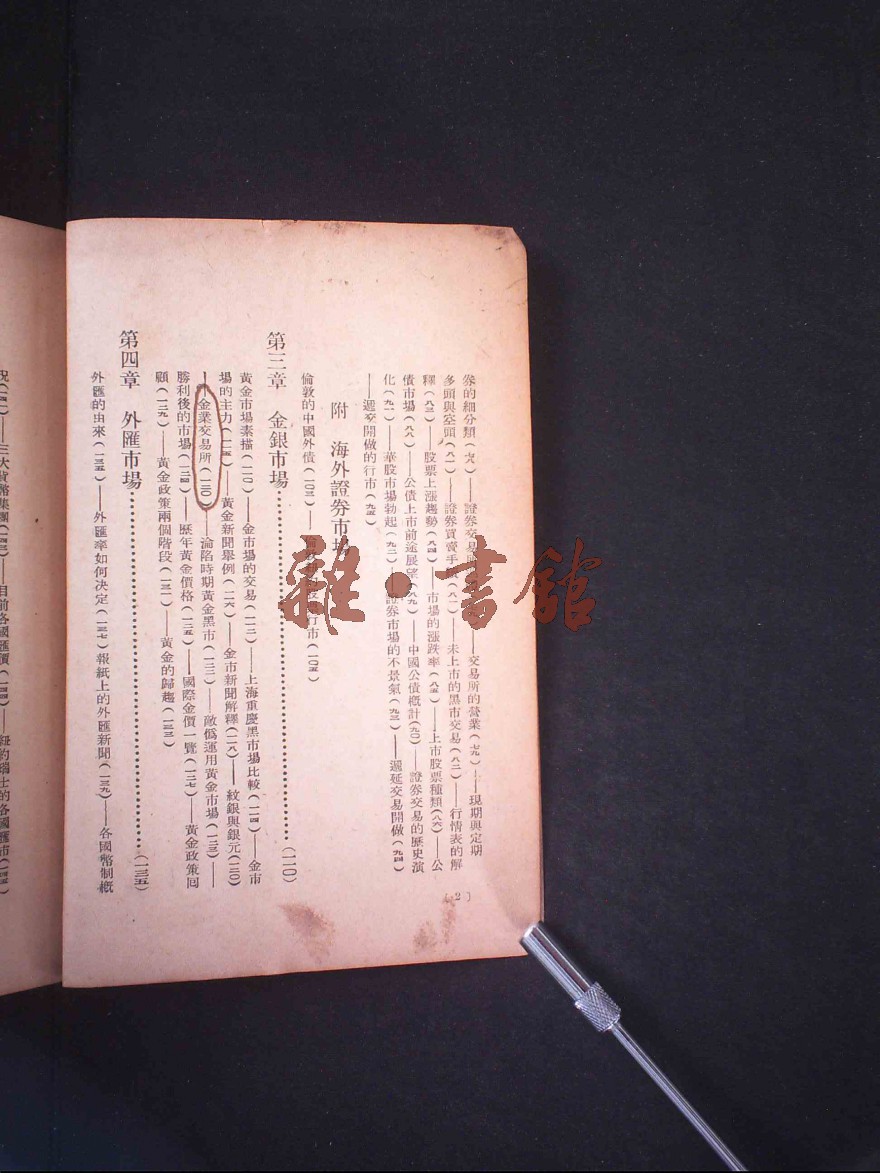 券的細分類(七九)——證券交易所——交易所的營業(七九)——現期與定期
多頭與空頭(八一)——證券買賣手續(八二)——未上市的黑市交易(八二)——行情表的解
釋(八三)——股票上漲趨勢(八四)——市場的漲跌率(八五)——上市股票種類(八六)——公
債市場(八八)——公債上市前途展望(八九)——中國公債概計(九〇)——證券交易的歷史演
化(九一)——華股市場勃起(九二)——證券市場的不景氣(九三)——遞延交易開做(九四)
——遞交開做的行市(九五)
附 海外證券市場
倫敦的中國外債(一〇三)——行市(一〇五)
第三章 金銀市場…………(一一〇)
黃金市場素描(一一〇)——金市場的交易(一一二)——上海重慶黑市場比較(一一四)——金市
場的主力(一一五)——黃金新聞舉例(一一六)——金市新聞解釋(一一八)——紋銀與銀元(一二〇)
——金業交易所(一二〇)——淪陷時期黃金黑市(一二二)——敵僞運用黃金市場(一二三)——
勝利後的市場(一二四)——歷年黃金價格(一二五)——國際金價一覽(一二七)——黃金政策囘
顧(一二九)——黃金政策兩個階段(一三一)——黃金的歸趨(一三三)
第四章 外匯市場…………(一三五)
外匯的由來(一三五)——外匯率如何決定(一三七)報紙上的外匯新聞(一三九)——各國幣制概
〔2〕
況(一四一)——三大貨幣集團(一四三)——目前各國匯價(一四四)——紐約瑞士的各國匯市(一四五)
雜·書館